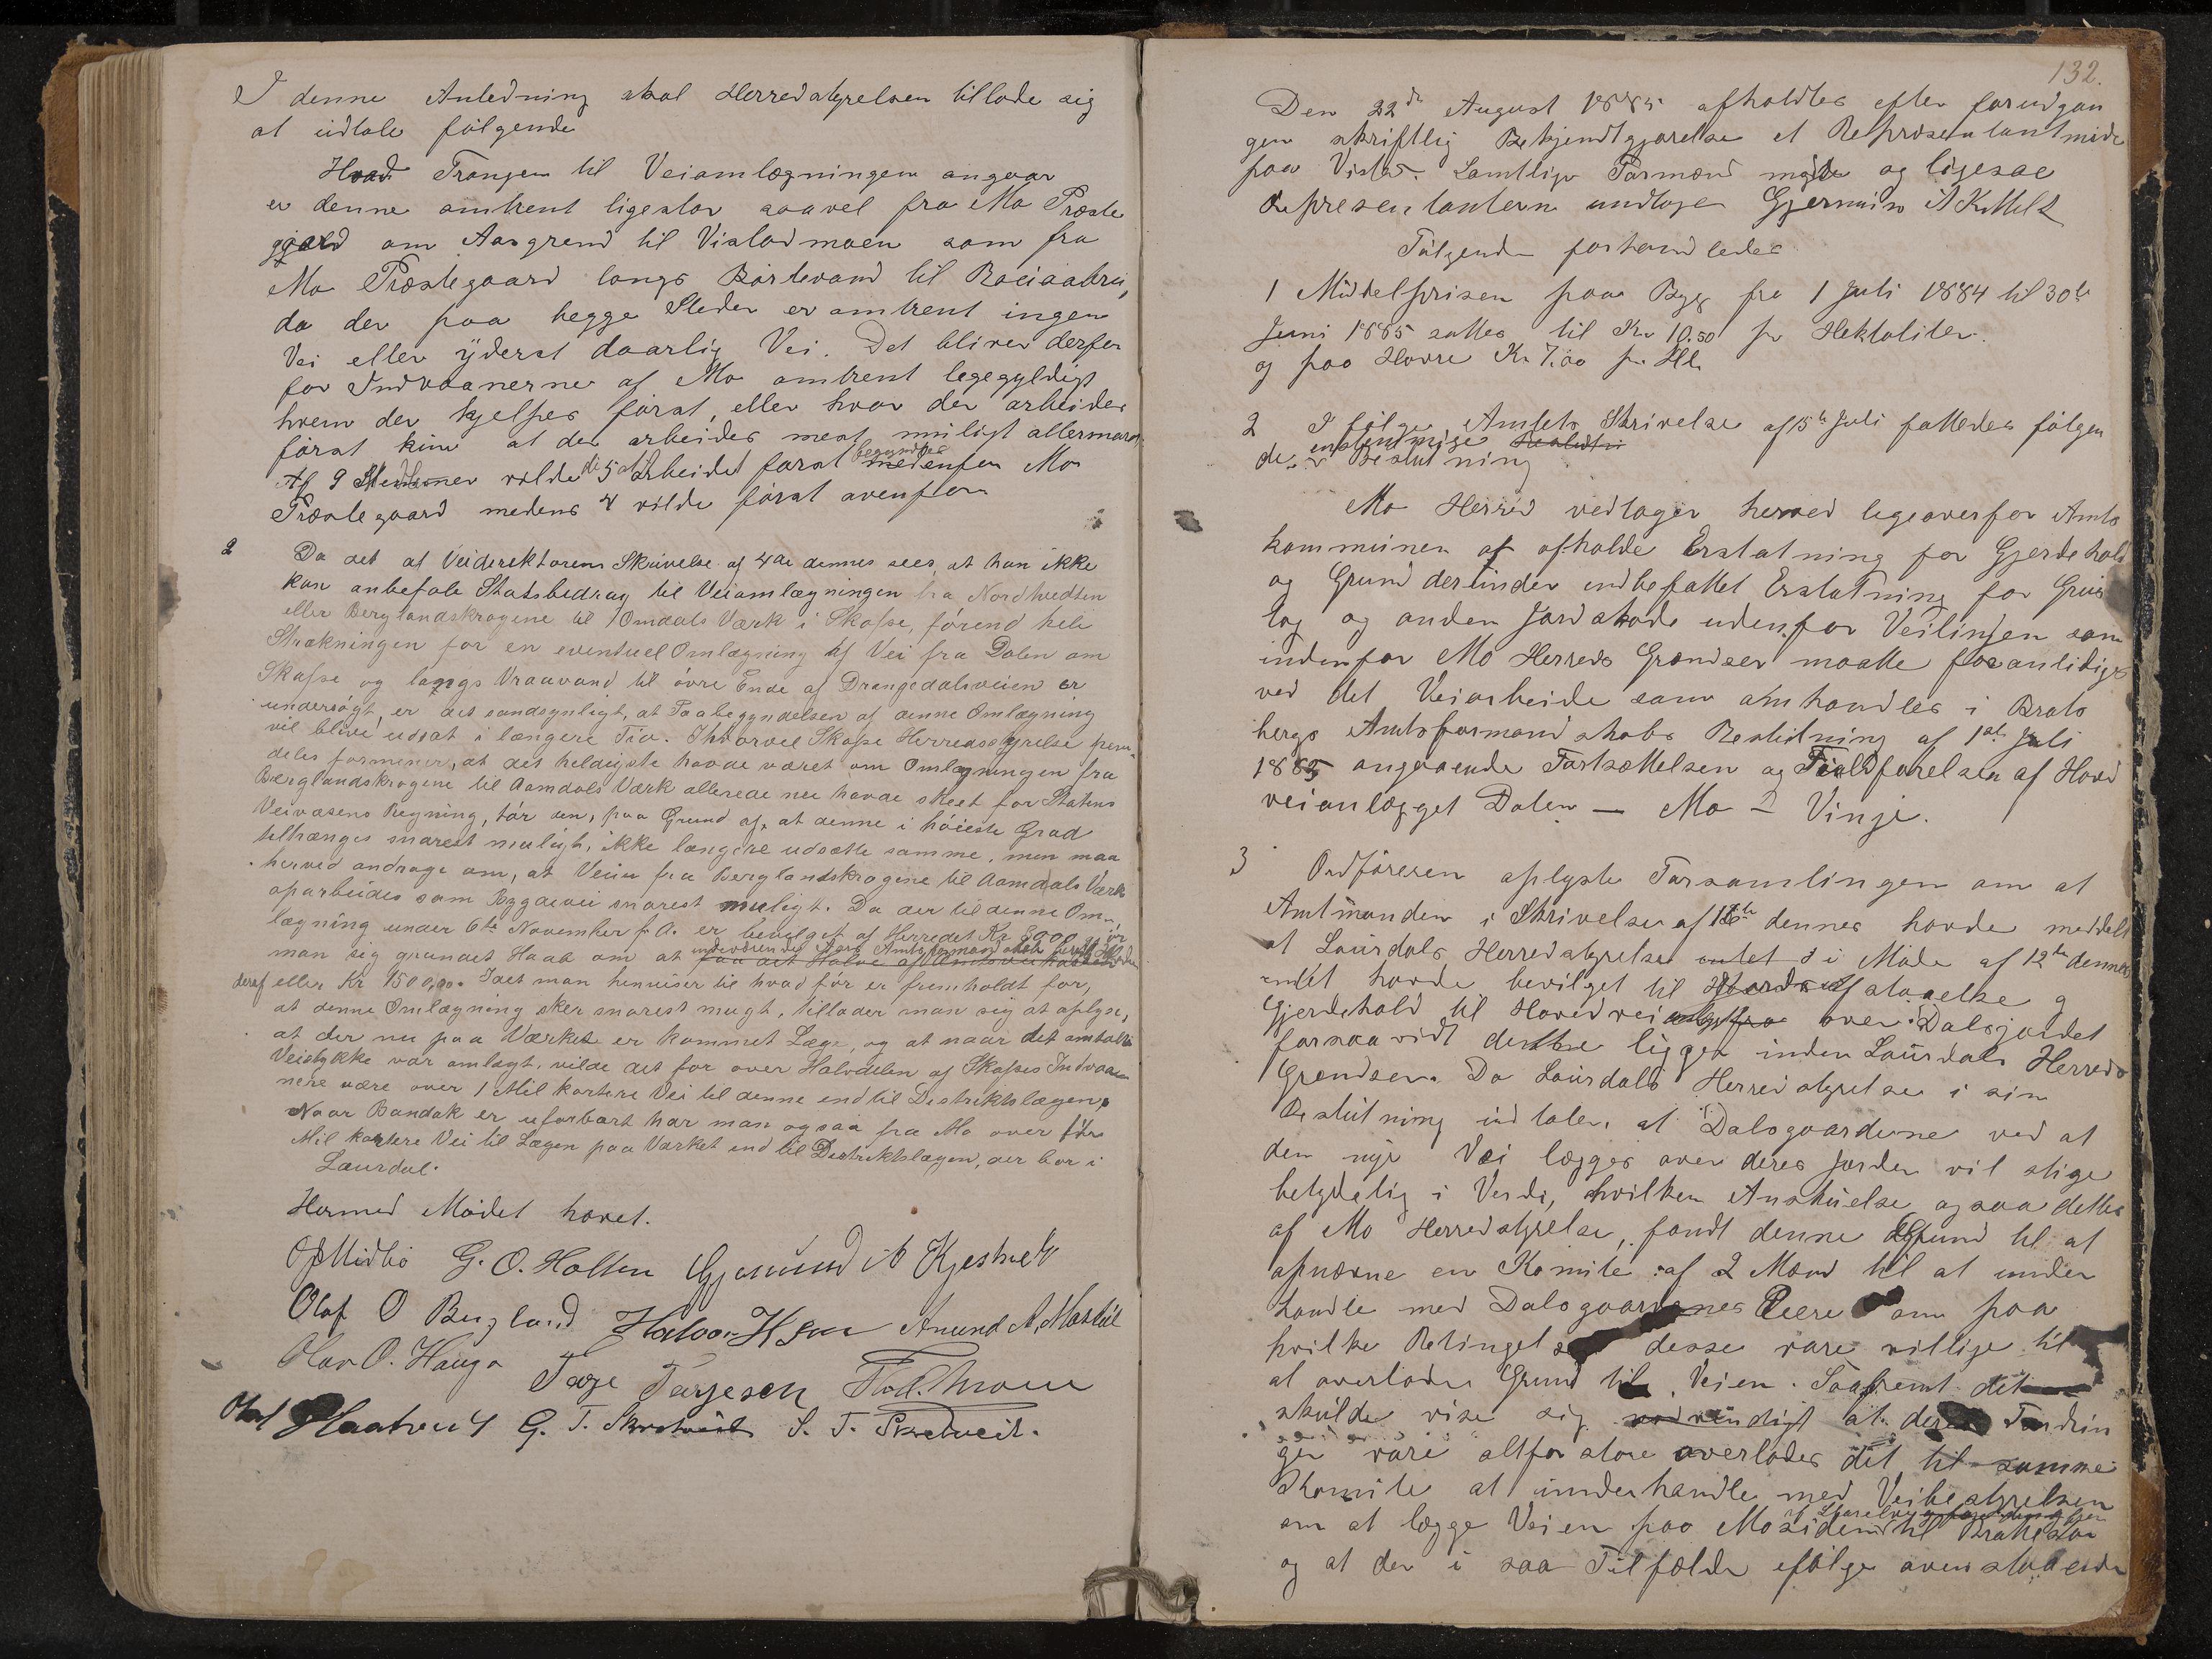 I denne Anledning skal Herredstyrelsen tillade sig
at udtale følgende
Hvad Trangen til Veiomlægningen angaar
er denne omtrent ligestor saavel fra Mo Præste
gjæld om Aasgrend til Vistadmoen som fra
Mo Præstegaard langs Børtevand til
da der paa begge Steder er omtrent ingen
Vei eller yderst daarlig Vei. Det bliver derfor
for Indvaanerne af Mo omtrent legegyldigt
hvem der hjelpes først, eller hvor der arbeides
først kun at der arbeides mest muligt allermest
Af 9 Stemmer vilde de 5 at Arbeidet først begyndtes nedenfor Mo
Præstegaard medens 4 vilde først ovenfor
2 Da det af Veidirektørens Skrivelse af 4de dennes sees, at han ikke
kan anbefale Statsbedrag til Veiomlægningen fra
eller Berglandskrogene til Omdals Værk i Skafse, førend hele
Strækningen for en eventuel Omlægning af Vei fra Dalen om
Skafse og langs Vraavand til øvre Ende af Drangedalsveien er
undersøgt, er det sandsynligt, at Paabegyndelsen af denne Omlægning
vil blive udsat i længere Tid. Ihvorvel Skafse Herredsstyrelse frem-
deles formener, at det heldigste havde været om Omlægningen fra
Berglandskrogene til Aamdals Værk allerede nu havde skeet for Statens
Veivæsens Regning, tør den, paa Grund af, at denne i høieste Grad
tiltrænges snarest muligt, ikke længere udsætte samme, men maa
herved andrage om, at Veien fra Berglandskrogene til Aamdals Værk
oparbeides som Bygdevei snarest muligt. Da der til denne Om-
lægning under 6te November f. A. er bevilget af Herredet Kr 3000, gjør
man sig grundet Haab om at indeværende Aars Amtsformandskab
faa det Halve af Amtsveikassen
deraf eller Kr 1500,00. Idet man henviser til hvad før er fremholdt for,
at denne Omlægning sker snarest mugt, tillader man sig at oplyse,
at der nu paa Værket er kommet Læge, og at naar det omtalte
Veistykke var omlagt, vilde det for over Halvdelen af Skafses Indvaa-
nere være over 1 Mil kortere Vei til denne end til Distriktslægen.
Naar Bandak er ufarbart har man ogsaa fra Mo over
Mil kortere Vei til Lægen paa Værket end til Distriktslægen, der bor i
Laurdal.
Hermed Mødet hævet.
G. O. Holten Gjermund A
Olaf O Bergland Anund A.
Olav O. Hauge Tarje Tarjesen
G. T. S. T.
132.
Den 22de August 1885 afholdtes efter forudgan
gen skriftlig Bekjendtgjørelse et Repræsentantmøde
paa Vistad. Samtlige Formænd mødte og ligesaa
Repræsentanterne undtagen
Følgende forhandledes
1 Middelprisen paa Byg fra 1 Juli 1884 til 30te
Juni 1885 sattes til Kr 10.50 pr Hektoliter.
og paa Havre Kr 7.00 pr. Hl.
2 I følge Amtets Skrivelse af 5te Juli fattedes følgen
de enstemmige Beslutning
Mo Herred vedtager herved ligeoverfor Amts
kommunen at afholde Erstatning for Gjerdehold
og Grund derunder indbefattet Erstatning for Grus
tag og anden Jordskade udenfor Veilinjen som
indenfor Mo Herreds Grændser maatte foranlediges
ved det Veiarbeide som omhandles i Brats
bergs Amtsformandskabs Beslutning af 1ste Juli
1885 angaaende Fortsættelsen og Fuldførelsen af Hoved
veianlægget Dalen — Mo — Vinje.
3 Ordføreren oplyste Forsamlingen om at
Amtmanden i Skrivelse af dennes havde meddelt
at Laurdals Herredstyrelse i Møde af 12te dennes
intet havde bevilget til afstaaelse og
Gjerdehold til Hovedvei over Dalsjordet
forsaavidt dette ligger inden Laurdals Herreds
Grændser. Da Laurdals Herredstyrelse i sin
Beslutning udtaler, at Dalsgaardene ved at
den nye Vei lægges over deres Jorder vil stige
betydelig i Verdi, hvilken Anskuelse ogsaa deltes
af Mo Herredstyrelse, fandt denne Grund til at
opnævne en Komite af 2 Mænd til at under
handle med Dalsgaardenes Eiere om paa
hvilke Betingelser disse vare villige til
at overlade Grund til Veien. Saafremt det
skulde vise sig at deres Fordrin
ger vare altfor store overlades det til samme
Komite at underhandle med Veibestyrelsen
om at lægge Veien paa Mosiden til
og at der i saa Tilfælde ifølge ovenstaaende